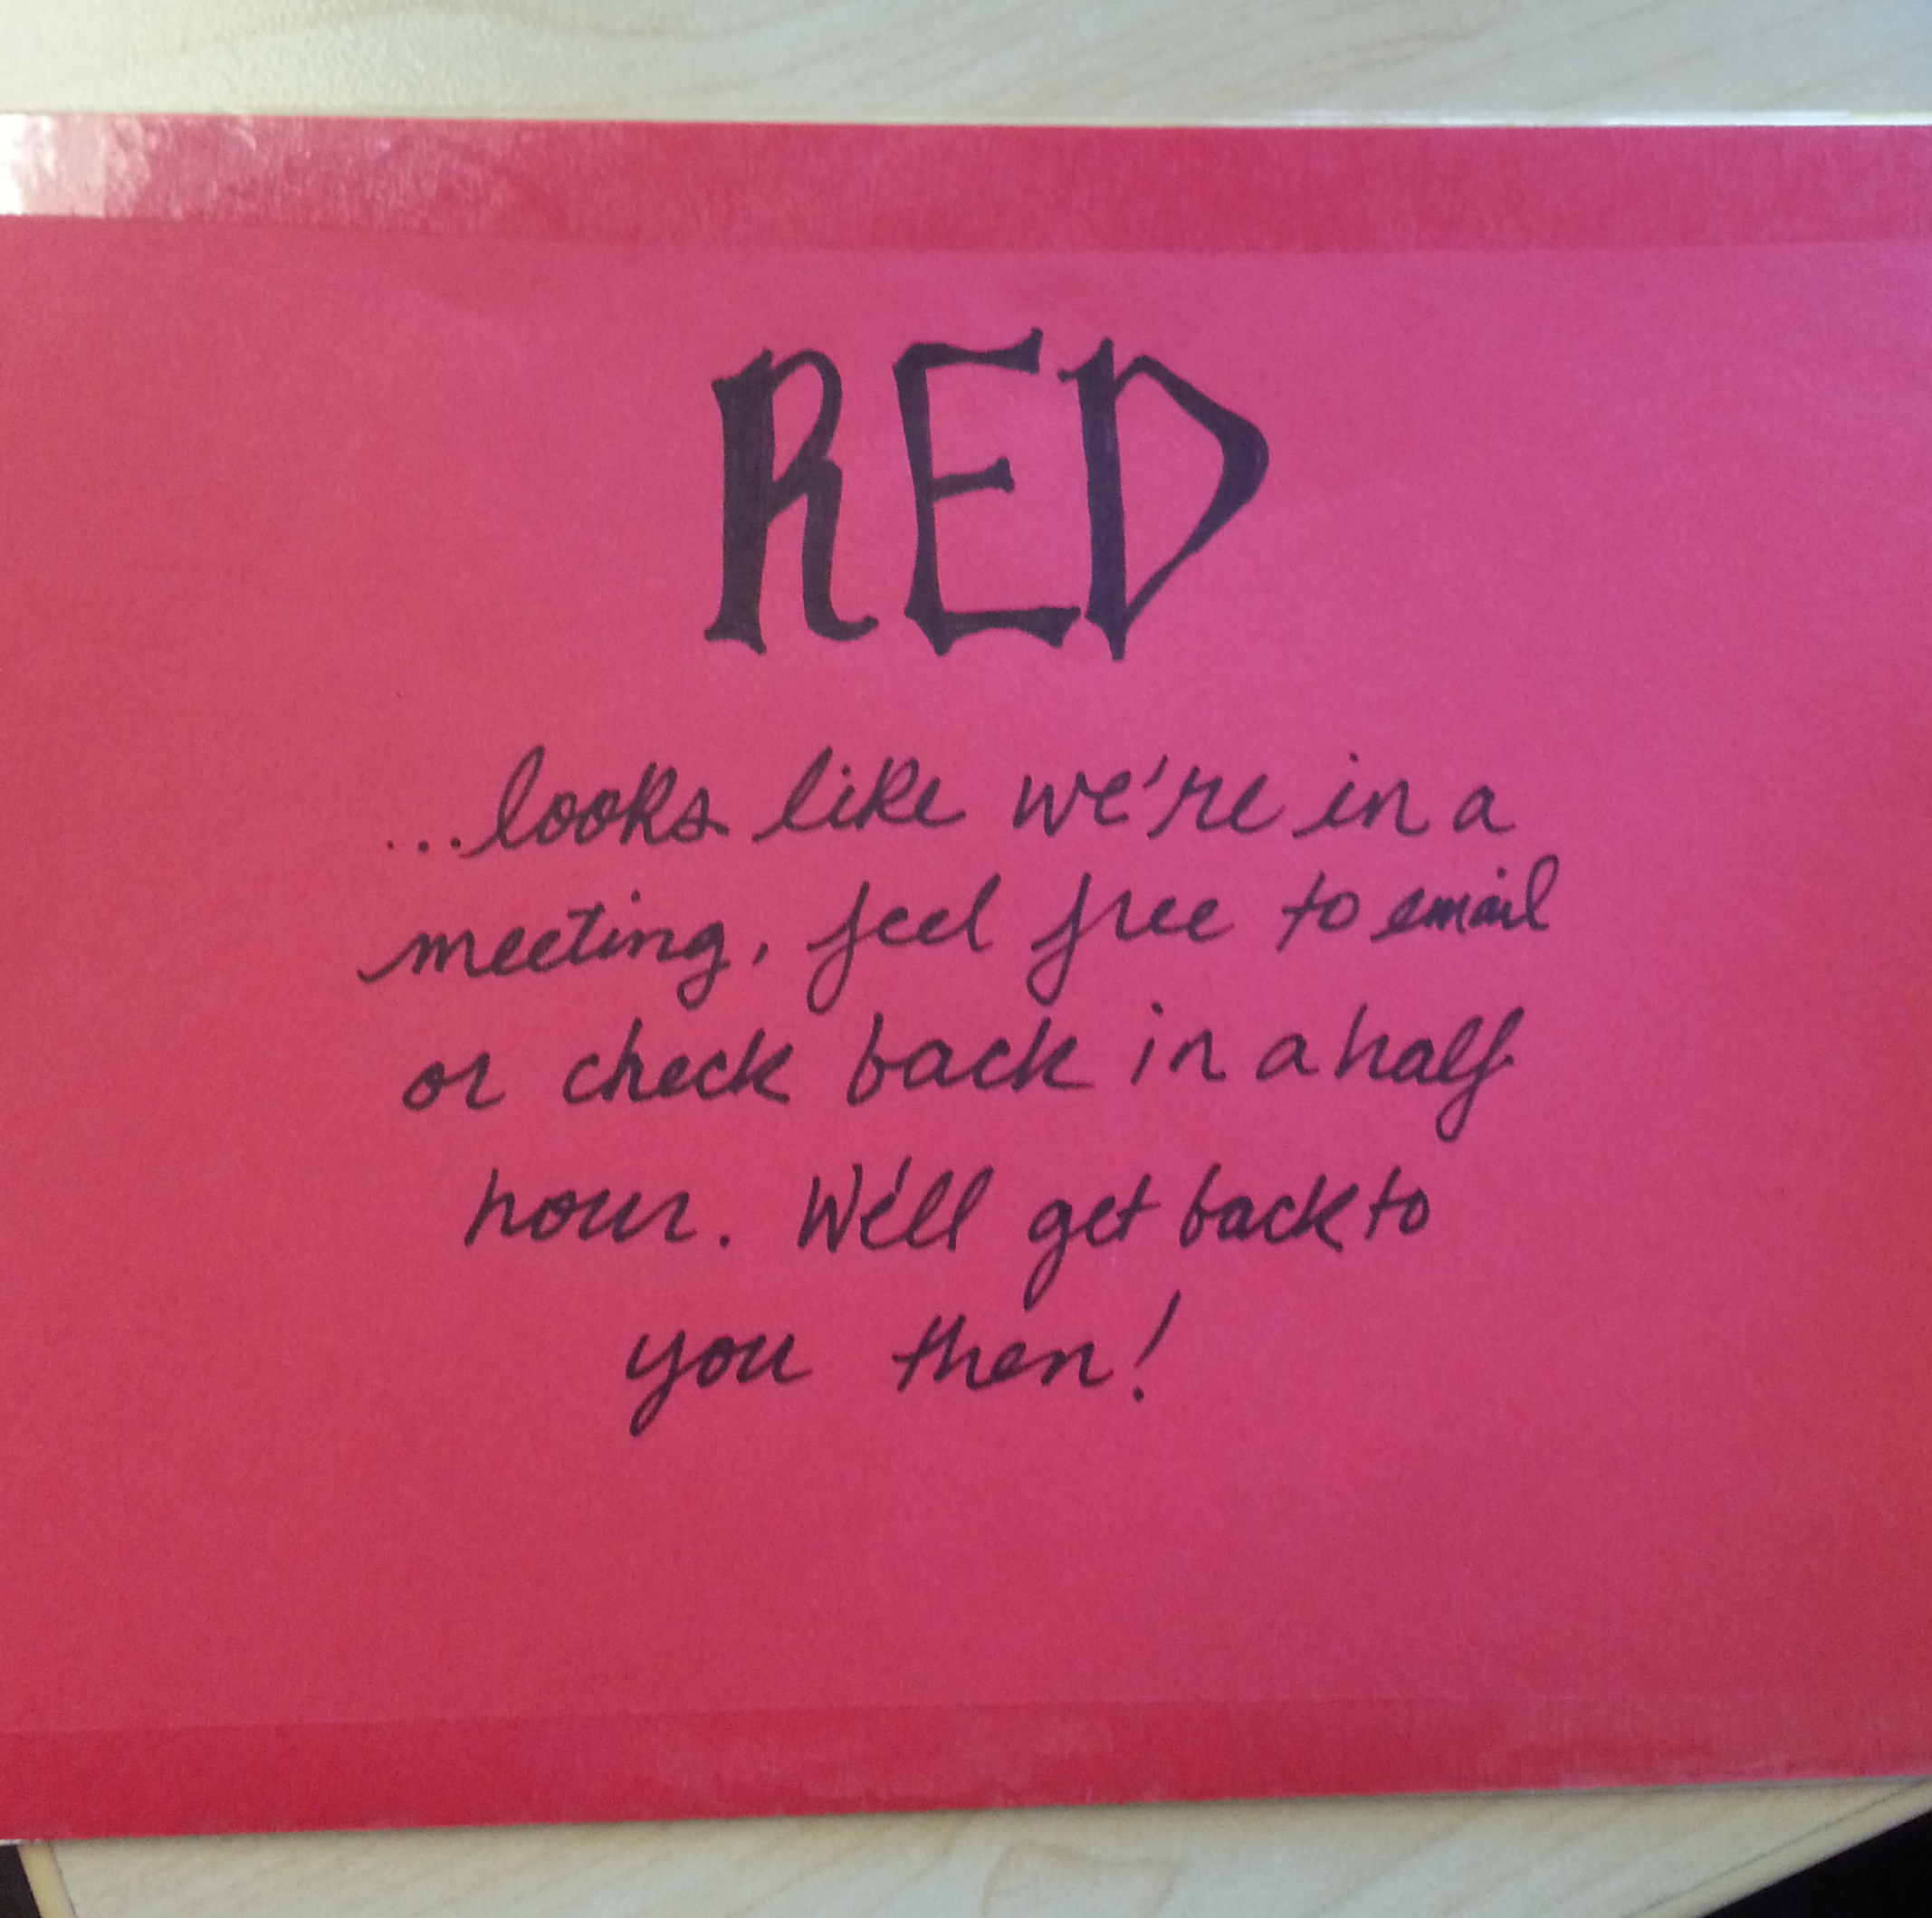 RED
...looks like we're in a
meeting, feel free to email
or check back in a half
hour. We'll get back to
you then!